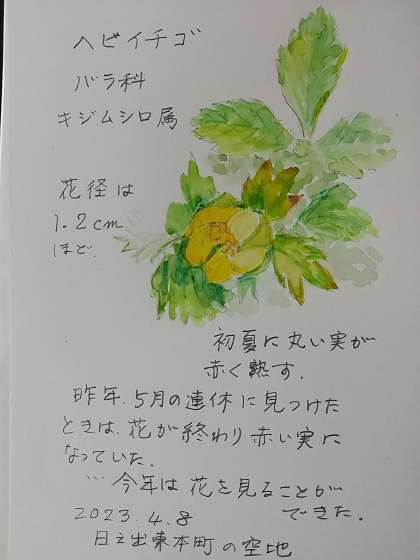 ヘビイチゴ
バラ科
キジムシロ属
花径は
1.2cm
ほど.
初夏に丸い実が
赤く熟す.
昨年.5月の連休に見つけた
ときは、花が終わり赤い実に
なっていた.
… 今年は花を見ることが
できた.
2023.4.8
日之出東本町の空地